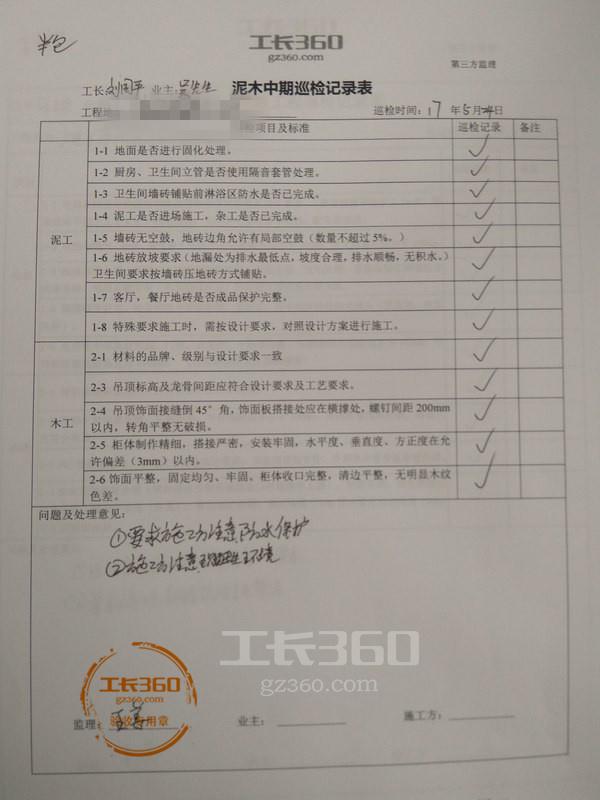 半包
工长360
gz360.com
第三方监理
工长: 业主: 吴先生 泥木中期巡检记录表
工程地 巡检时间: 17 年 5 月 日
检项目及标准 巡检记录 备注
泥工
1-1 地面是否进行固化处理。
1-2 厨房、卫生间立管是否使用隔音套管处理。
1-3 卫生间墙砖铺贴前淋浴区防水是否已完成。
1-4 泥工是否进场施工，杂工是否已完成。
1-5 墙砖无空鼓，地砖边角允许有局部空鼓（数量不超过 5%。）
1-6 地砖放坡要求（地漏处为排水最低点，坡度合理，排水顺畅，无积水。）
卫生间要求按墙砖压地砖方式铺贴。
1-7 客厅，餐厅地砖是否成品保护完整。
1-8 特殊要求施工时，需按设计要求，对照设计方案进行施工。
木工
2-1 材料的品牌、级别与设计要求一致
2-3 吊顶标高及龙骨间距应符合设计要求及工艺要求。
2-4 吊顶饰面接缝倒 45° 角，饰面板搭接处应在横撑处，螺钉间距 200mm
以内，转角平整无破损。
2-5 柜体制作精细，搭接严密，安装牢固，水平度、垂直度、方正度在允
许偏差（3mm）以内。
2-6 饰面平整，固定均匀、牢固、柜体收口完整，清边平整，无明显木纹
色差。
问题及处理意见：
①要求施工方注意防水保护
②施工方注意 卫生环境
工长360
gz360.com
工长360
gz360.com
验收专用章
监理: 业主: 施工方: